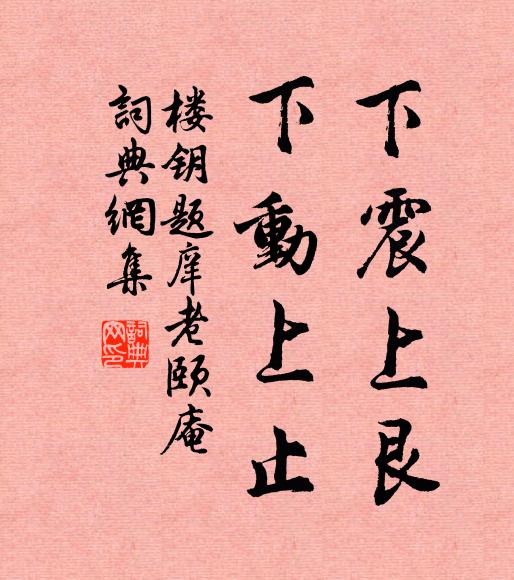 下震上艮
下動上止
楼钥题庠老颐庵
詞典網集
詞典网印